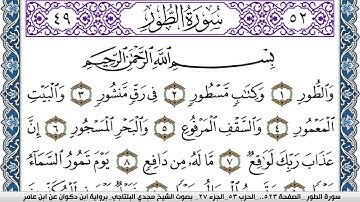 ٥٢ سُورَةُ الطُّورِ ٤٩
بِسْمِ اللَّهِ الرَّحْمَٰنِ الرَّحِيمِ
وَالطُّورِ ١ وَكِتَابٍ مَسْطُورٍ ٢ فِي رَقٍّ مَنْشُورٍ ٣ وَالْبَيْتِ
الْمَعْمُورِ ٤ وَالسَّقْفِ الْمَرْفُوعِ ٥ وَالْبَحْرِ الْمَسْجُورِ ٦ إِنَّ
عَذَابَ رَبِّكَ لَوَاقِعٌ ٧ مَا لَهُ مِنْ دَافِعٍ ٨ يَوْمَ تَمُورُ السَّمَاءُ
سورة الطور _الصفحة ٥٢٣_ الحزب ٥٣_ الجزء ٢٧ _ بصوت الشيخ مجدي البلتاجي_ برواية ابن ذكوان عن ابن عامر